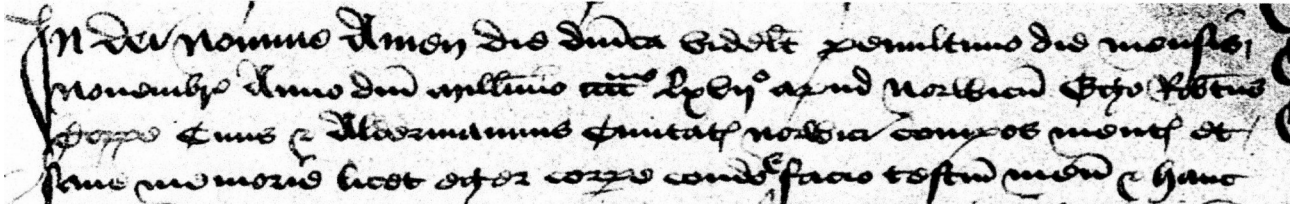 In dei nomine Amen die dnica videlt penultimo die mensis
Novembr Anno dni millimo cccc mo lxvij o apud Norwicu Ego Robtus
Toppe Civis & Aldermannus Civitat Norwici compos ment et
sane memorie licet eger corpe condo & facio testm meu & hanc